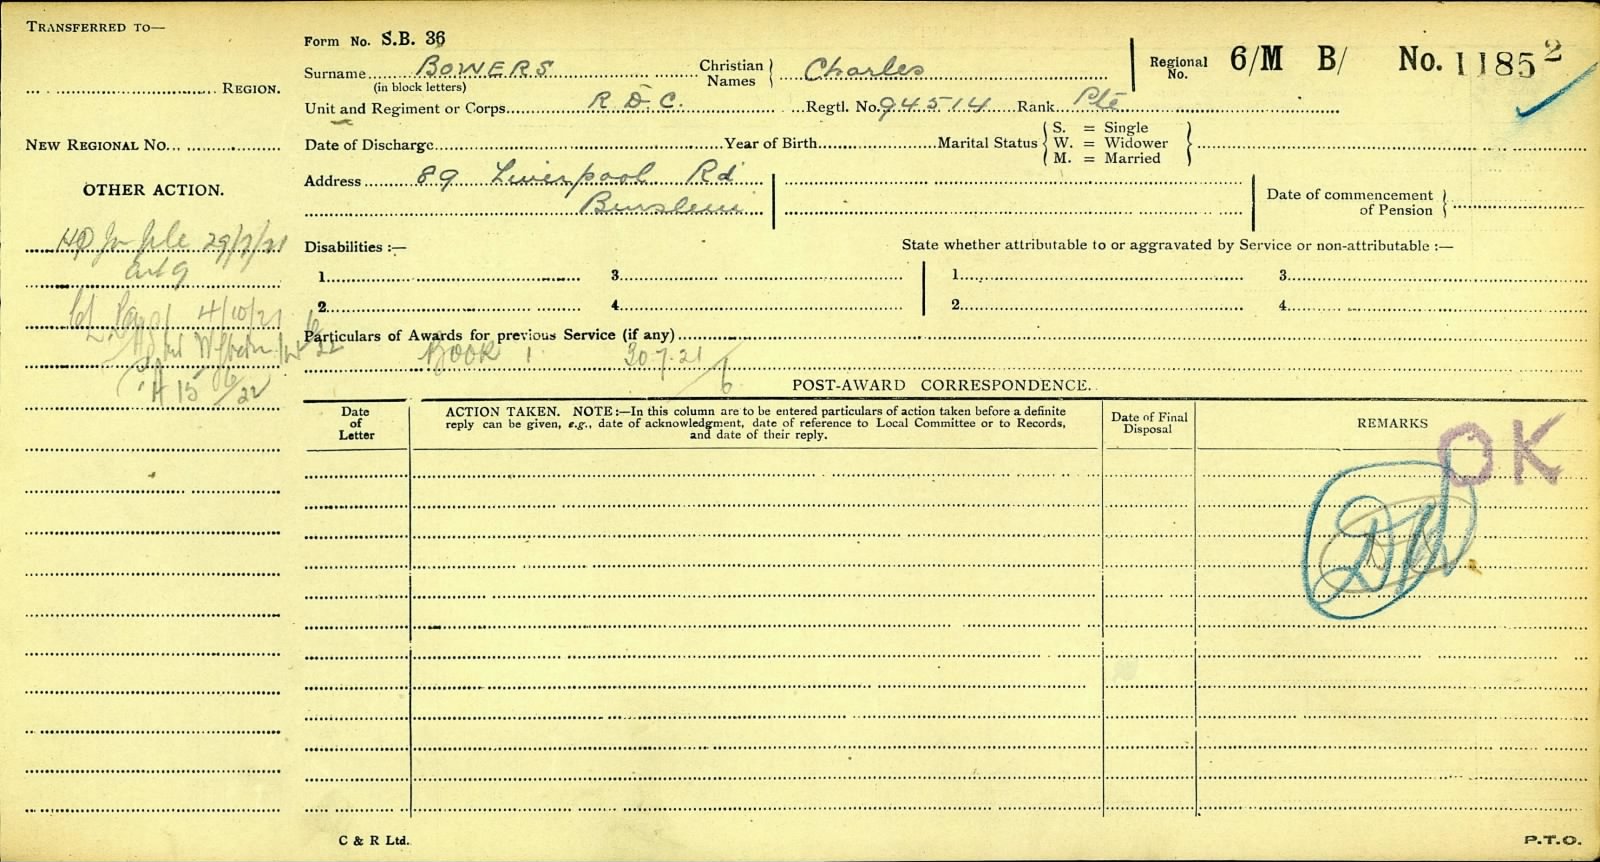 TRANSFERRED TO—
REGION.
NEW REGIONAL NO.
OTHER ACTION.
29/7/21
4/10/21
15/6/22
Form No. S.B. 36
Surname BOWERS
(in block letters)
Christian Names } Charles
Regional No. 6/M B/ No. 11852
Unit and Regiment or Corps R D C. Regtl. No. 94514 Rank Pte
Date of Discharge Year of Birth Marital Status { S. = Single
W. = Widower
M. = Married }
Address 89 Liverpool Rd
Burslem
Date of commencement of Pension }
Disabilities :— State whether attributable to or aggravated by Service or non-attributable :—
1 3 1 3
2 4 2 4
Particulars of Awards for previous Service (if any)
Book 1 30.7.21
POST-AWARD CORRESPONDENCE.
Date of Letter
ACTION TAKEN. NOTE:—In this column are to be entered particulars of action taken before a definite
reply can be given, e.g., date of acknowledgment, date of reference to Local Committee or to Records,
and date of their reply.
Date of Final Disposal
REMARKS
OK
C & R Ltd.
P.T.O.